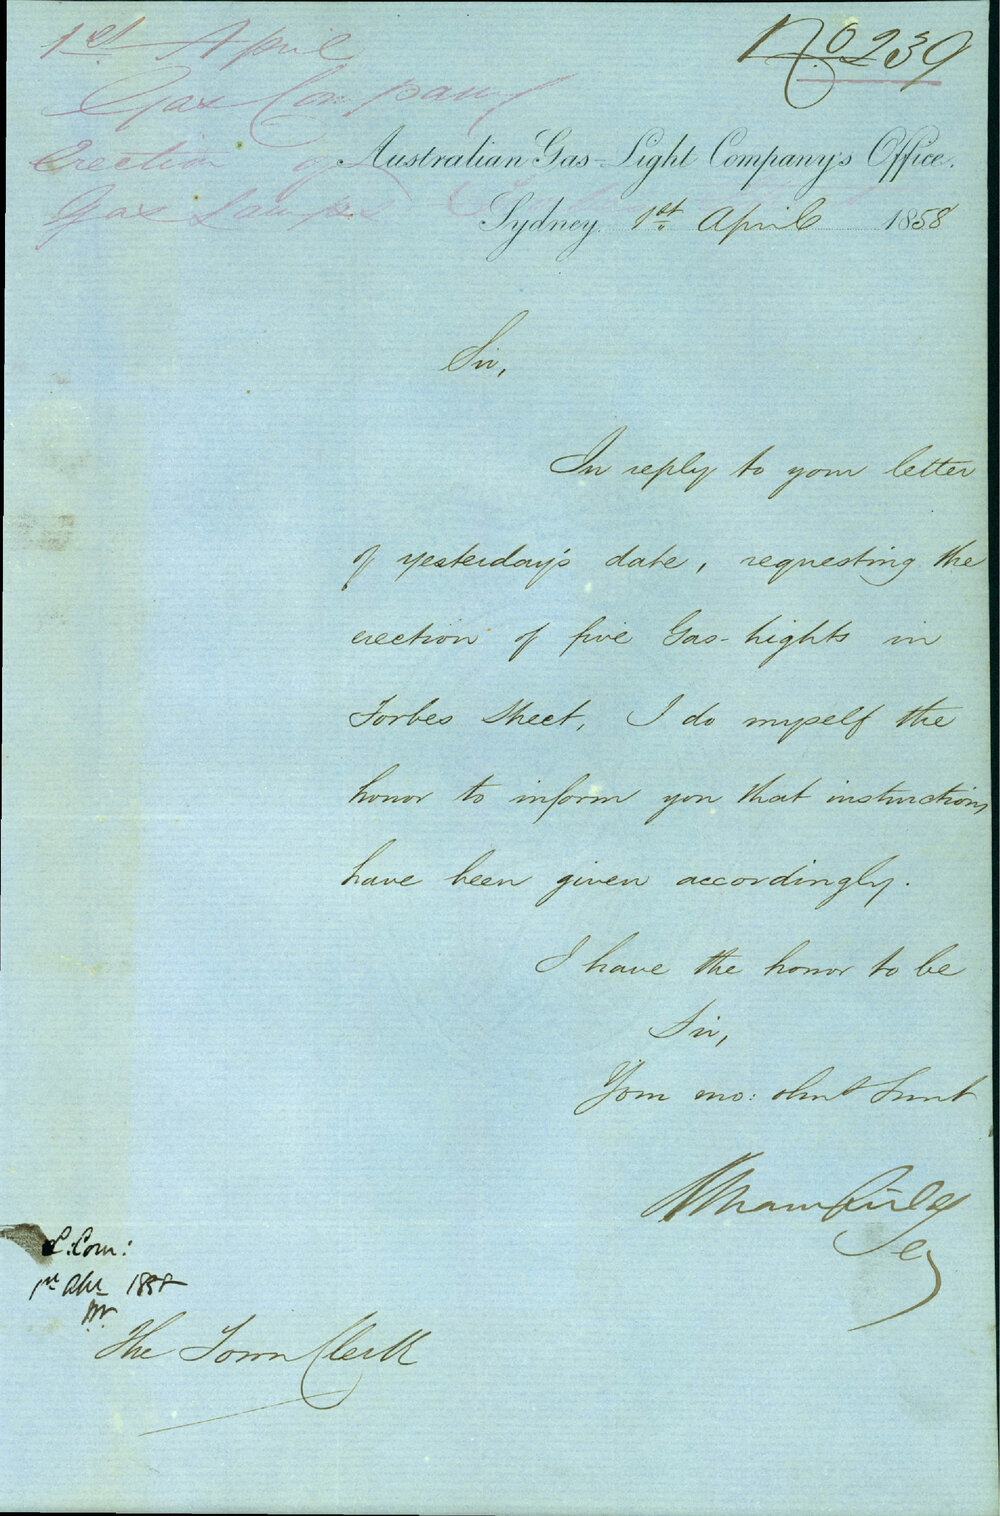 No 239
1st April
Gas Company
Erection of
Gas Lamps
Australian Gas-Light Company's Office.
Sydney 1st April 1858
Sir,
In reply to your letter
of yesterday's date, requesting the
erection of five Gas-lights in
Forbes Street, I do myself the
honor to inform you that instructions
have been given accordingly.
I have the honor to be
Sir,
Your mo: obnt Servnt
Secy
L. Com:
1st Apl 1858
The Town Clerk